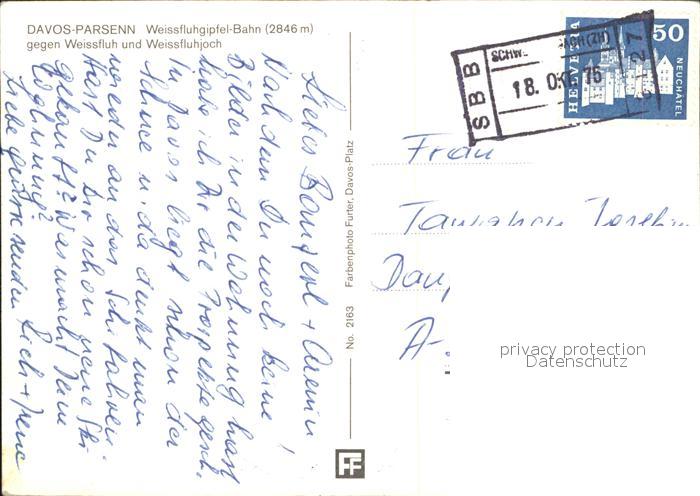 DAVOS-PARSENN Weissfluhgipfel-Bahn (2846 m)
gegen Weissfluh und Weissfluhjoch
Liebes + Armin!
Nachdem Du noch keine
Bilder in der Wohnung hast
habe ich Dir die Prospekte gesch.
In Davos liegt schon der
Schnee u. da denkt man
wieder an das Schifahren.
Hast Du Dir schon neue Ski
gekauft? Was macht Deine
Wohnung?
Liebe Grüsse senden Dich + Irene
No. 2163 Farbenphoto Furter, Davos-Platz
FF
SBB
SCHW ACH (ZH)
18. OKT. 75
HELVETIA
50
NEUCHÂTEL
Frau
A-
privacy protection
Datenschutz